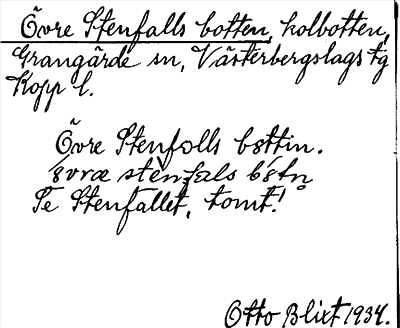 Övre Stenfalls botten, kolbotten,
Grangärde sn, Västerbergslags tg
Kopp l.
Övre Stenfalls bøttin.
Se Stenfallet, tomt!
Otto Blixt 1934.